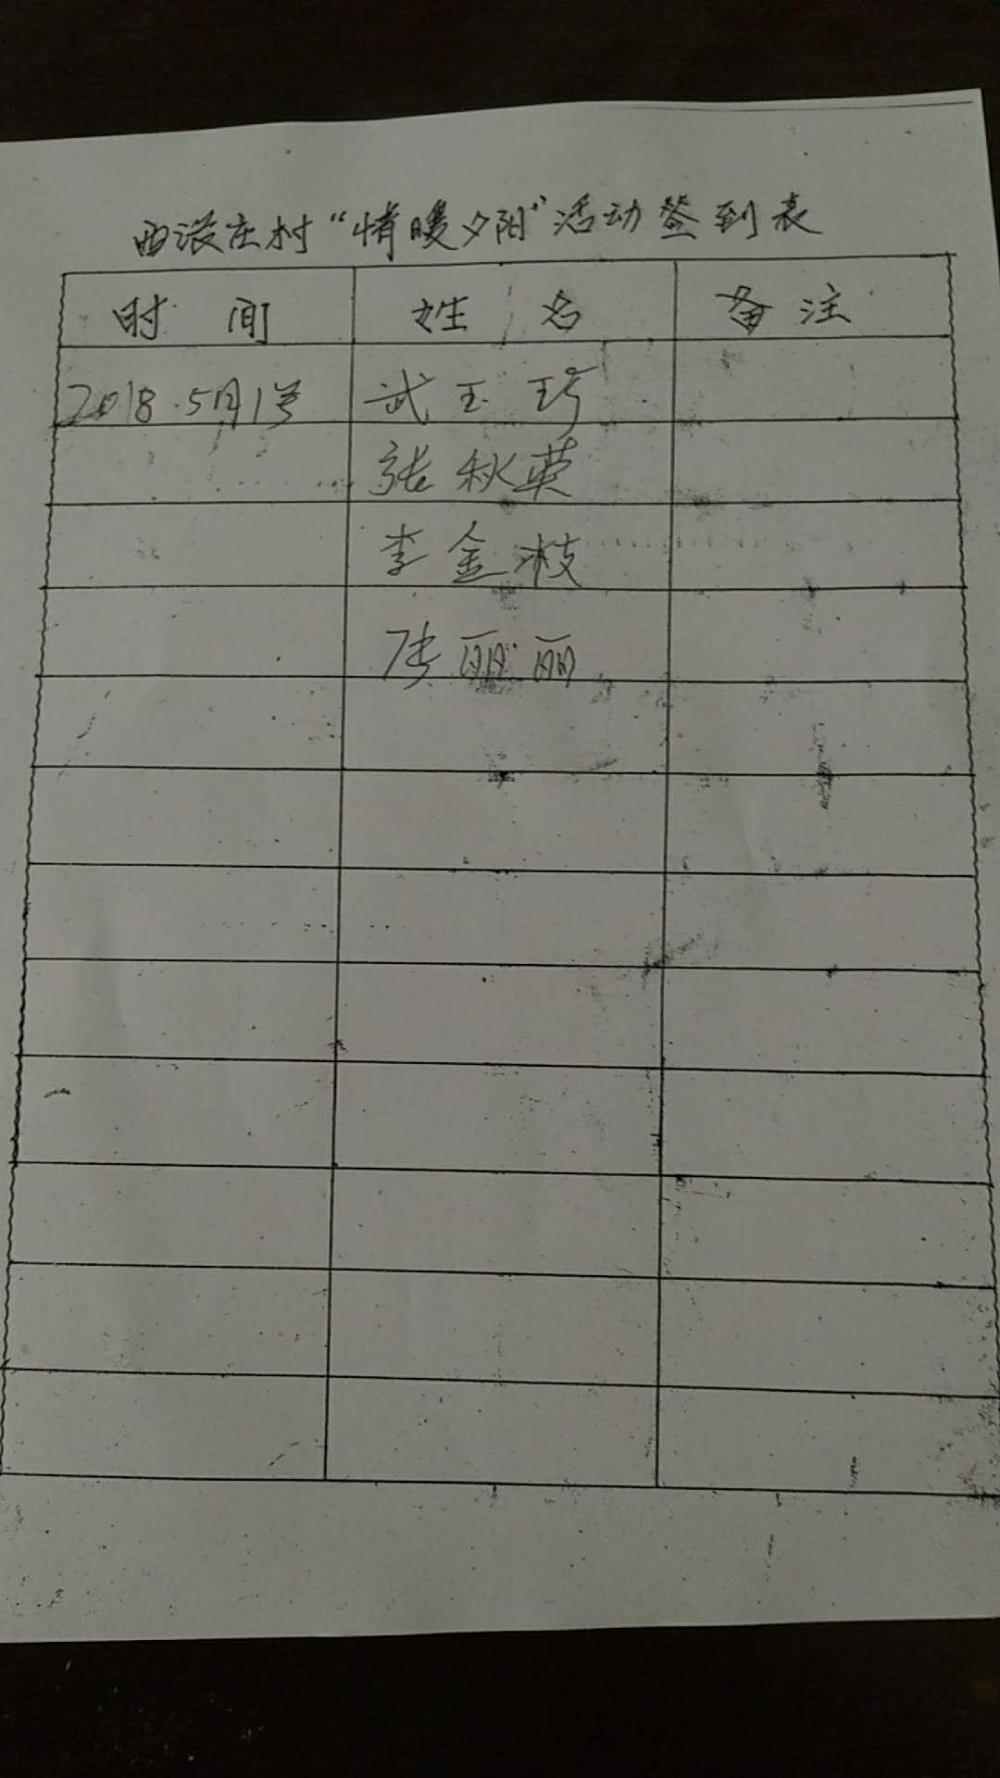 西滚庄村“情暖夕阳”活动签到表
时间 姓名 备注
2018.5月1号 武玉琦
张秋英
李金枝
陈丽丽